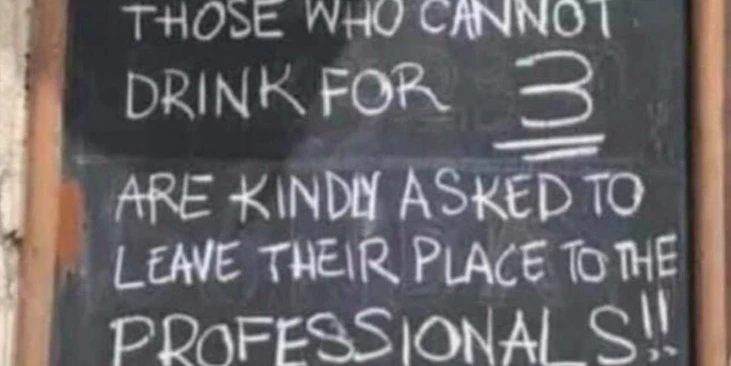 THOSE WHO CANNOT
DRINK FOR 3
ARE KINDLY ASKED TO
LEAVE THEIR PLACE TO THE
PROFESSIONALS!!